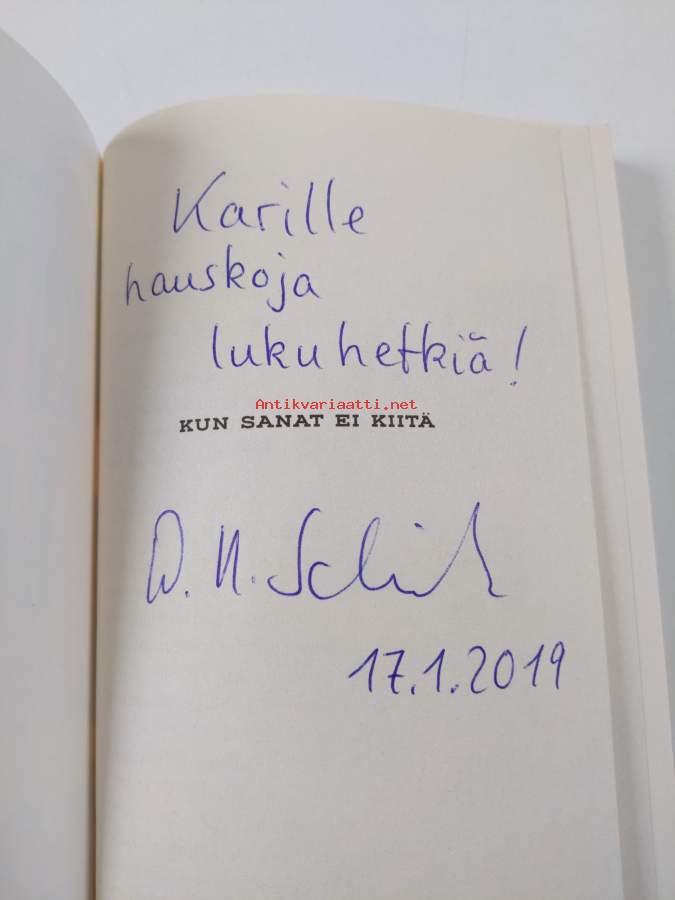 Karille
hauskoja
lukuhetkiä!
Antikvariaatti.net
KUN SANAT EI KIITÄ
17.1.2019